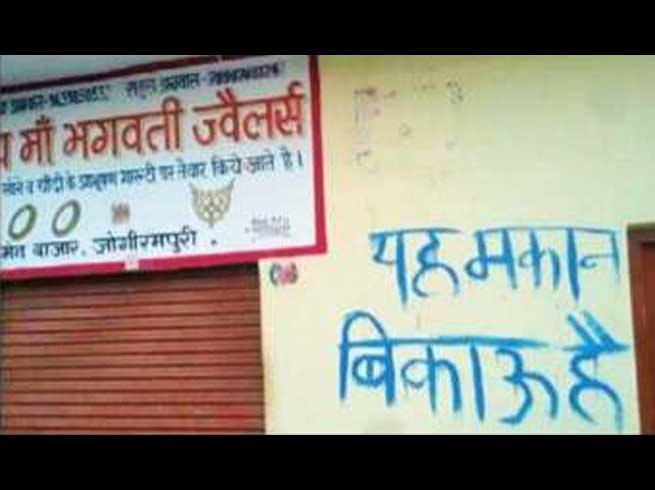 य माँ भगवती ज्वैलर्स
सोने व चाँदी के आभूषण गारन्टी पर तैयार किये जाते है।
बाजार, जोगीरमपुरी .
यह मकान
बिकाऊ है